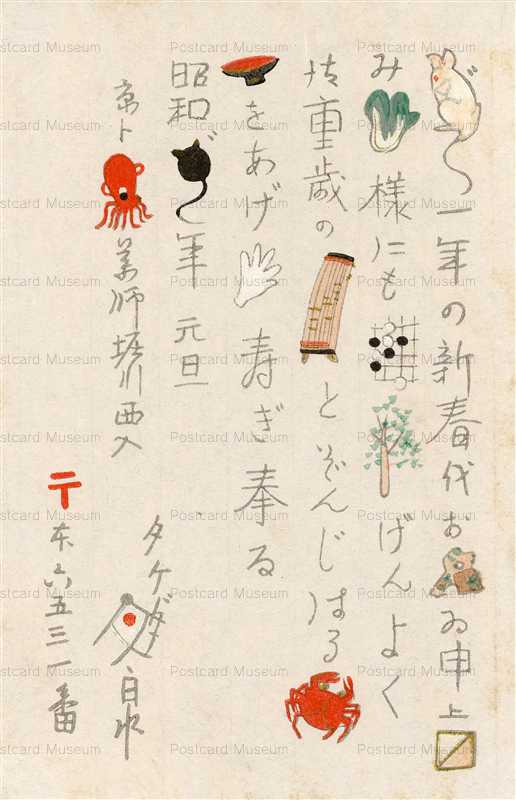 一年の新春代おゐ申上
み様にもげんよく
重歳のとぞんじはる
をあげ寿ぎ奉る
昭和年 元旦
京ト薬師堀川西入
タケダ白水
〒東六五三一番
Postcard Museum